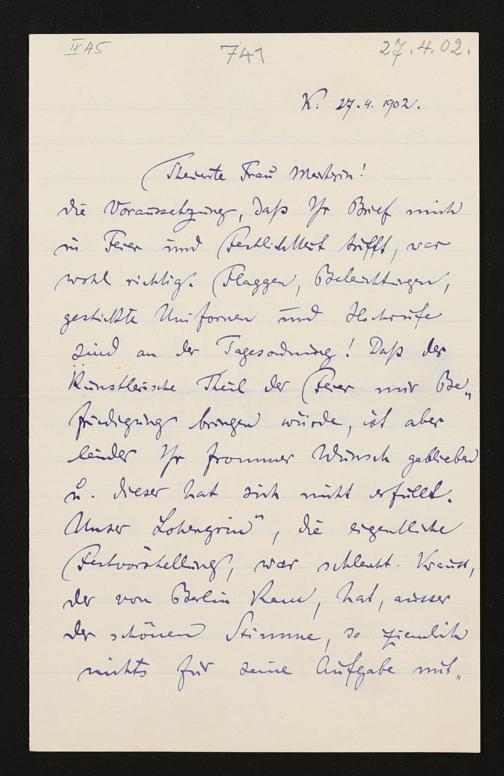 IV A5 741 27.4.02.
K. 27.4.1902.
Theuerste Frau Meisterin!
die Voraussetzung, daß Ihr Brief mich
in Feier und Festlichkeit trifft, war
wohl richtig. Flaggen, Beleuchtungen,
gestickte Uniformen und Hochrufe
sind an der Tagesordnung! Daß der
künstlerische Theil der Feier mir Be„
friedigung bringen würde, ist aber
leider Ihr frommer Wunsch geblieben
u. dieser hat sich nicht erfüllt.
Unser „Lohengrin“, die eigentliche
Festvorstellung, war schlecht. Krauss,
der von Berlin kam, hat, ausser
der schönen Stimme, so ziemlich
nichts für seine Aufgabe mit„